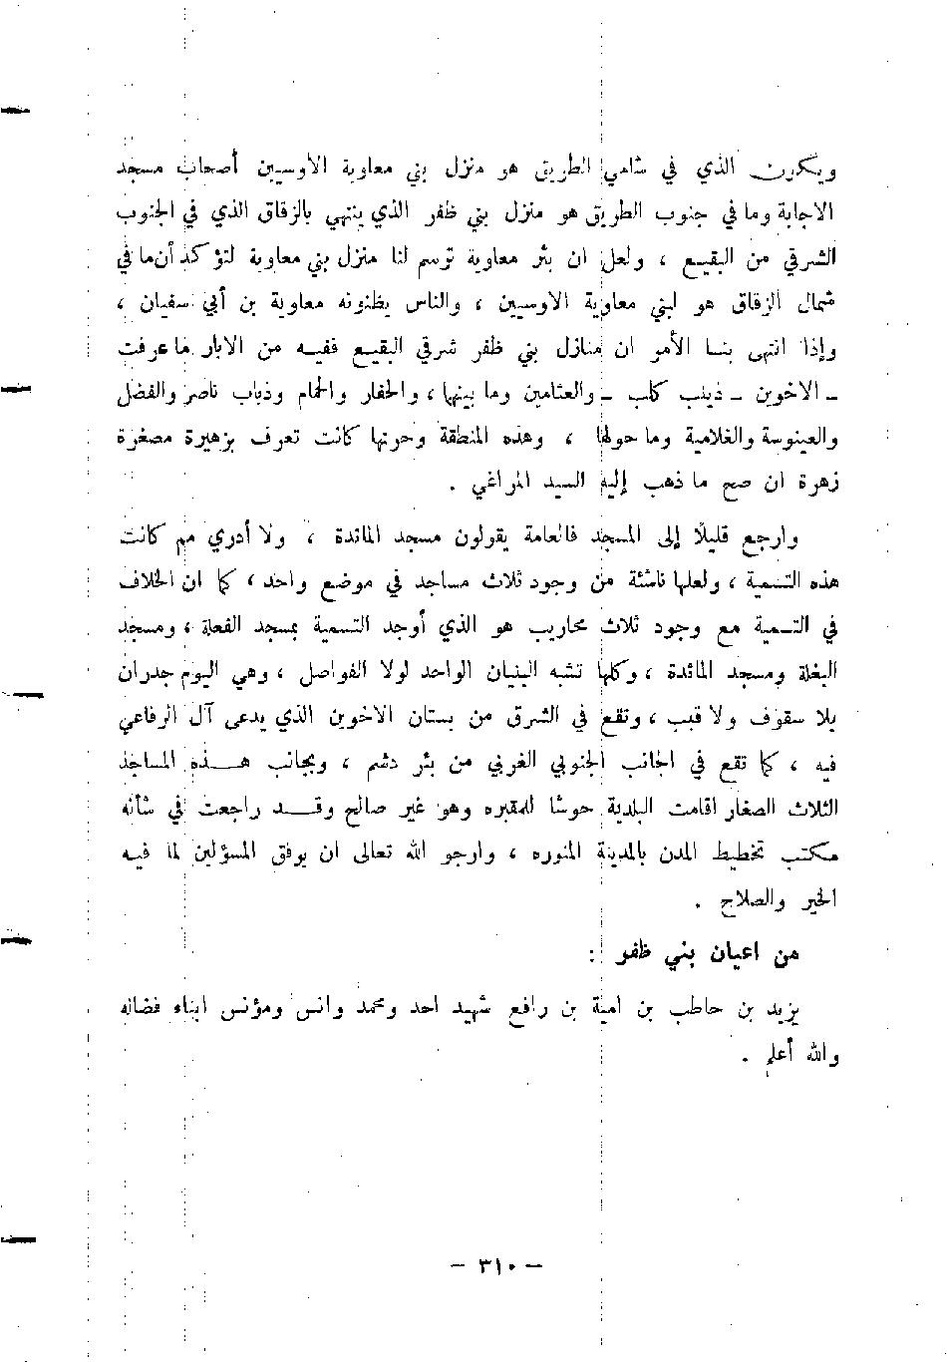 ويكون الذي في شامي الطريق هو منزل بني معاوية الاوسيين أصحاب مسجد
الاجابة وما في جنوب الطريق هو منزل بني ظفر الذي ينتهي بالزقاق الذي في الجنوب
الشرقي من البقيع ، ولعل ان بئر معاوية ترسم لنا منزل بني معاوية لتؤكد أن ما في
شمال الزقاق هو لبني معاوية الاوسيين ، والناس يظنونه معاوية بن أبي سفيان ،
وإذا انتهى بنا الأمر ان منازل بني ظفر شرقي البقيع ففيه من الابار ما عرفت
ـ الاخوين ـ ذينب كلب ـ والعثامين وما بينها ، والحفار والحمام وذباب ناصر والفضل
والعينوسة والغلامية وما حولها ، وهذه المنطقة وحرتها كانت تعرف بزهيرة مصغرة
زهرة ان صح ما ذهب إليه السيد المراغي .
وارجع قليلًا إلى المسجد فالعامة يقولون مسجد المائدة ، ولا أدري مم كانت
هذه التسمية ، ولعلها ناشئة من وجود ثلاث مساجد في موضع واحد ، كما ان الخلاف
في التسمية مع وجود ثلاث محاريب هو الذي أوجد التسمية بمسجد الفعلة ، ومسجد
البغلة ومسجد المائدة ، وكلها تشبه البنيان الواحد لولا الفواصل ، وهي اليوم جدران
بلا سقوف ولا قبب ، وتقع في الشرق من بستان الاخوين الذي يدعى آل الرفاعي
فيه ، كما تقع في الجانب الجنوبي الغربي من بئر دشم ، وبجانب هـذه المساجد
الثلاث الصغار اقامت البلدية حوشا للمقبره وهو غير صالح وقـد راجعت في شأنه
مكتب تخطيط المدن بالمدينة المنوره ، وارجو الله تعالى ان يوفق المسؤلين لما فيه
الخير والصلاح .
من اعيان بني ظفر :
يزيد بن حاطب بن امية بن رافع شهيد احد ومحمد وانس ومؤنس ابناء فضاله
والله أعلم .
ـ ٣١٠ ـ